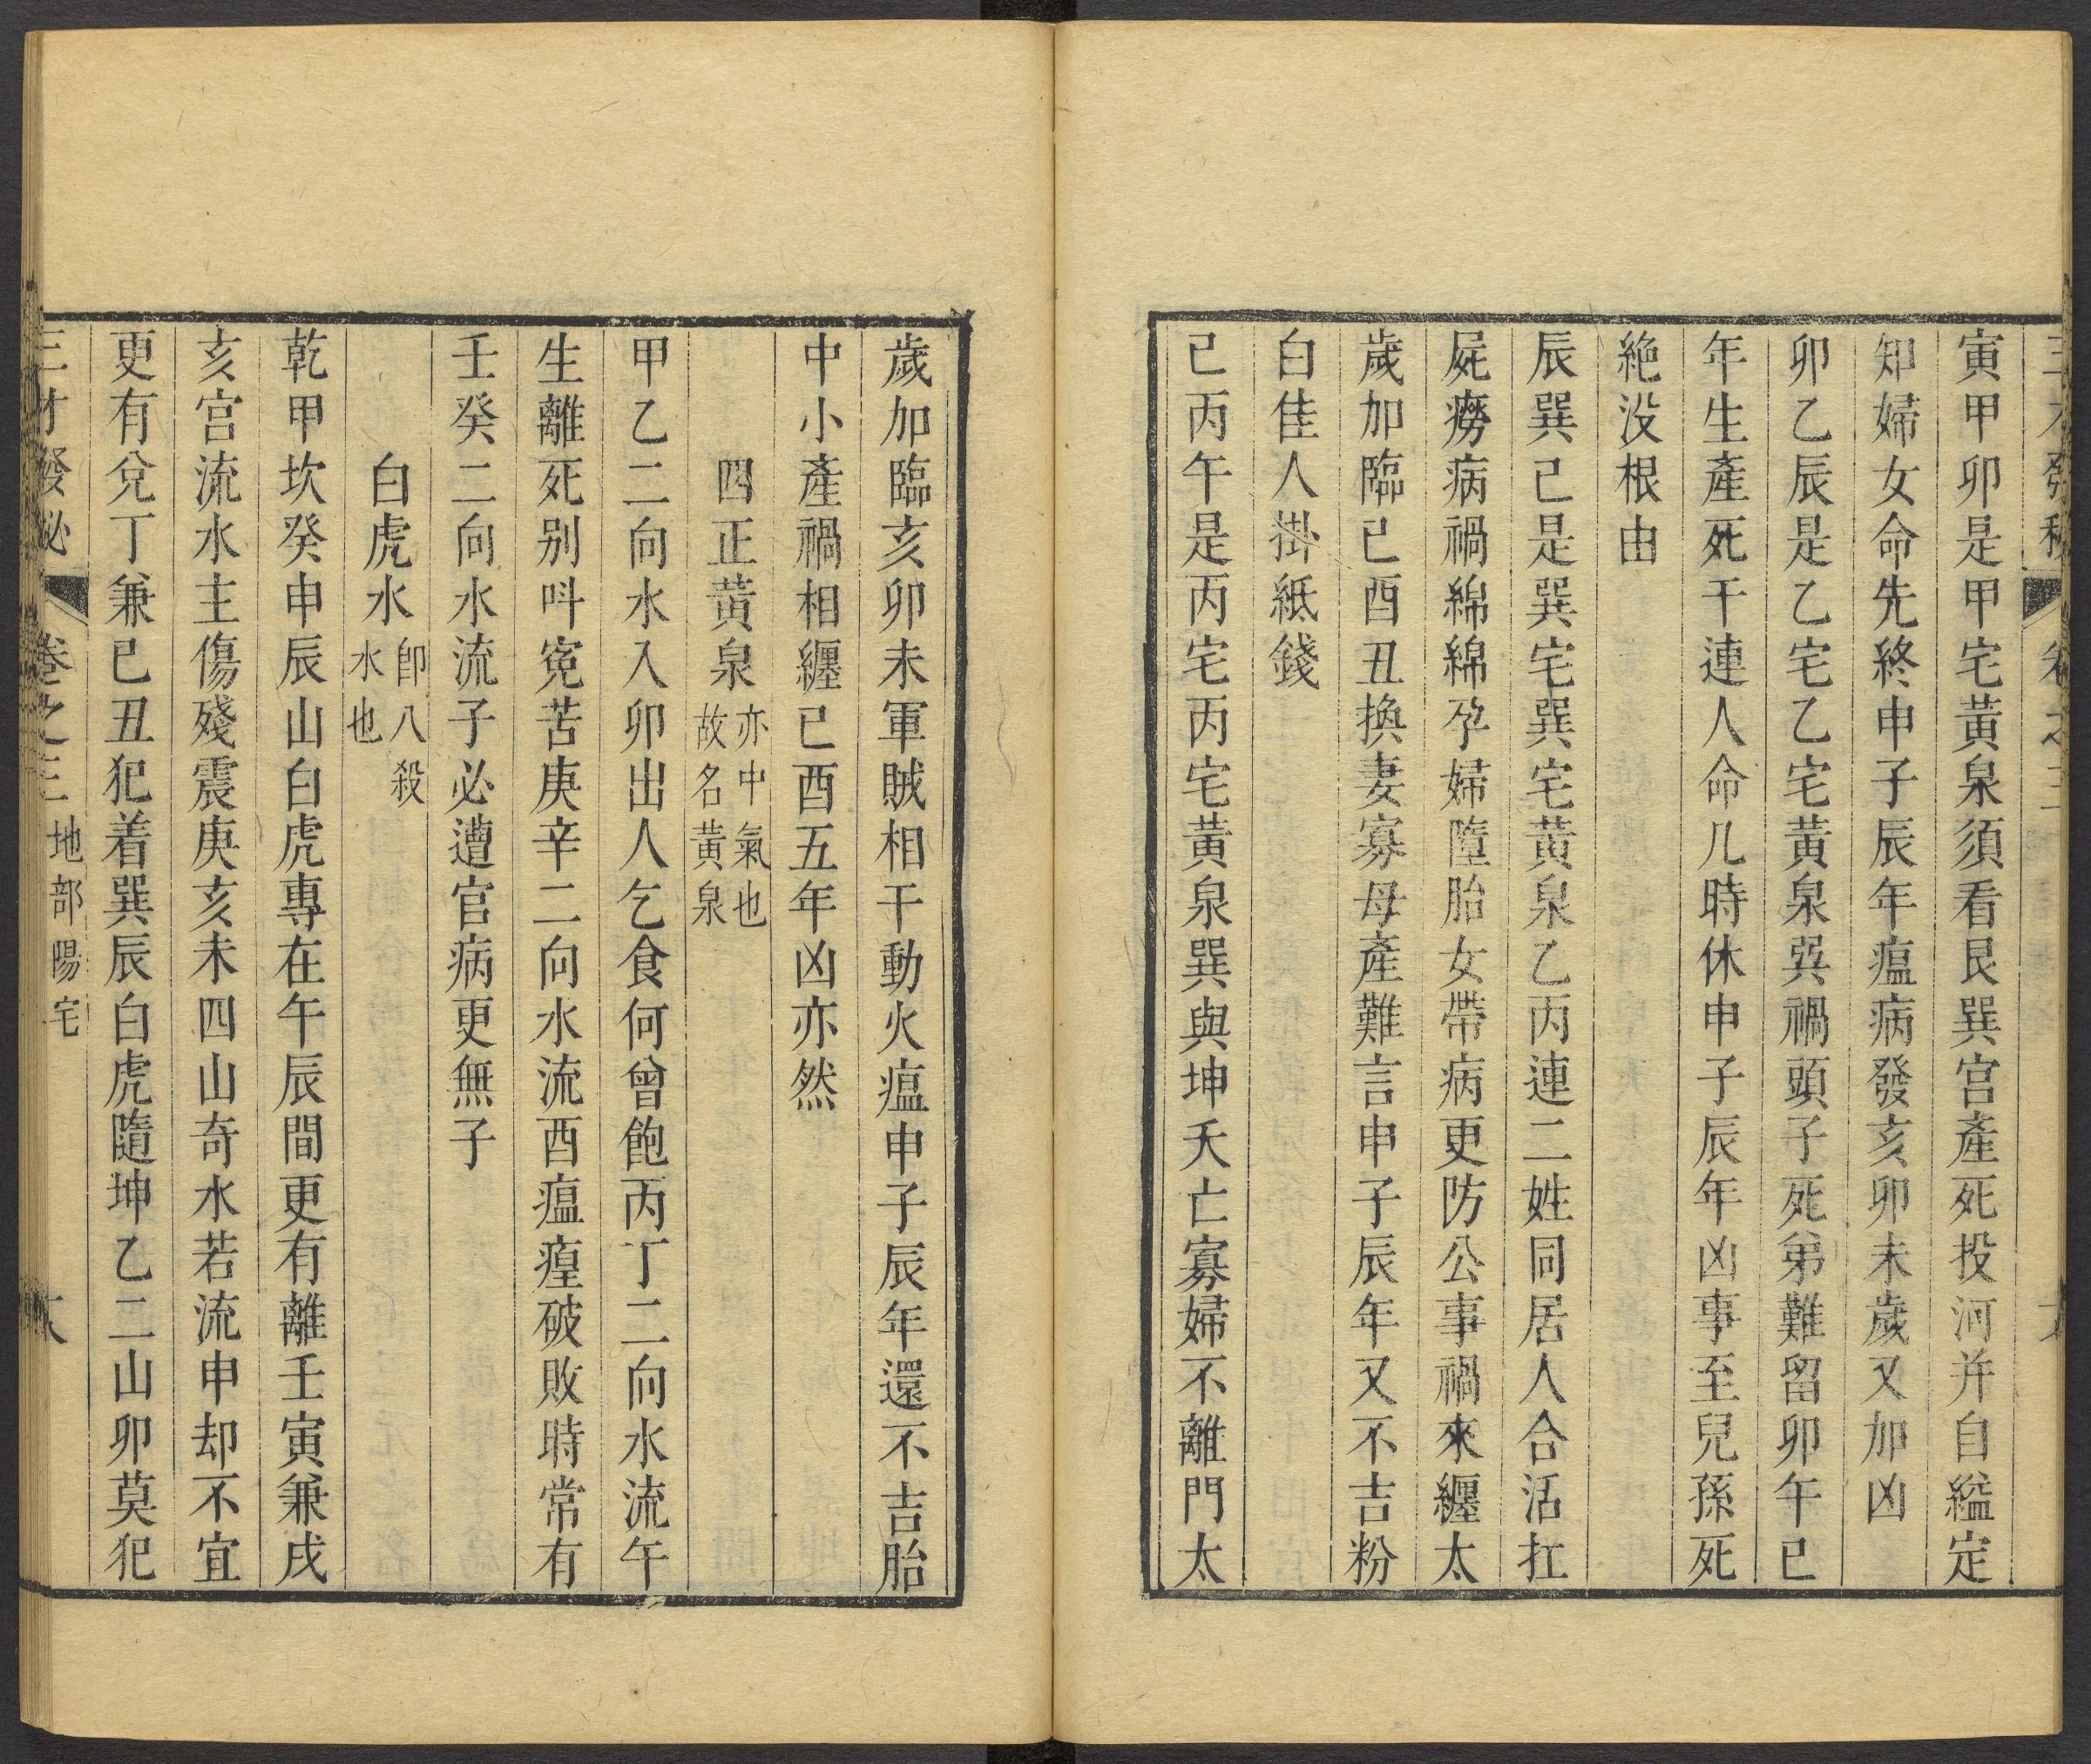 三才發秘 卷之三
寅甲卯是甲宅黃泉須看艮巽宮產死投河并自縊定
知婦女命先終申子辰年瘟病發亥卯未歲又加凶
卯乙辰是乙宅乙宅黃泉巽禍頭子死弟難留卯午已
年生產死干連人命几時休申子辰年凶事至兒孫死
絶没根由
辰巽已是巽宅巽宅黃泉乙丙連二姓同居人合活扛
屍癆病禍綿綿孕婦墮胎女帶病更防公事禍來纏太
歲加臨已酉丑換妻寡母產難言申子辰年又不吉粉
白佳人掛紙錢
已丙午是丙宅丙宅黃泉巽與坤夭亡寡婦不離門太
歲加臨亥卯未軍賊相干動火瘟申子辰年還不吉胎
中小產禍相纏已酉五年凶亦然
四正黃泉 亦中氣也故名黃泉
甲乙二向水入卯出人乞食何曾飽丙丁二向水流午
生離死别呌寃苦庚辛二向水流酉瘟瘟破敗時常有
壬癸二向水流子必遭官病更無子
白虎水 卽八殺水也
乾甲坎癸申辰山白虎專在午辰間更有離壬寅兼戌
亥宮流水主傷殘震庚亥未四山奇水若流申却不宜
更有兌丁兼已丑犯着巽辰白虎隨坤乙二山卯莫犯
三才發秘 卷之三 地部陽宅